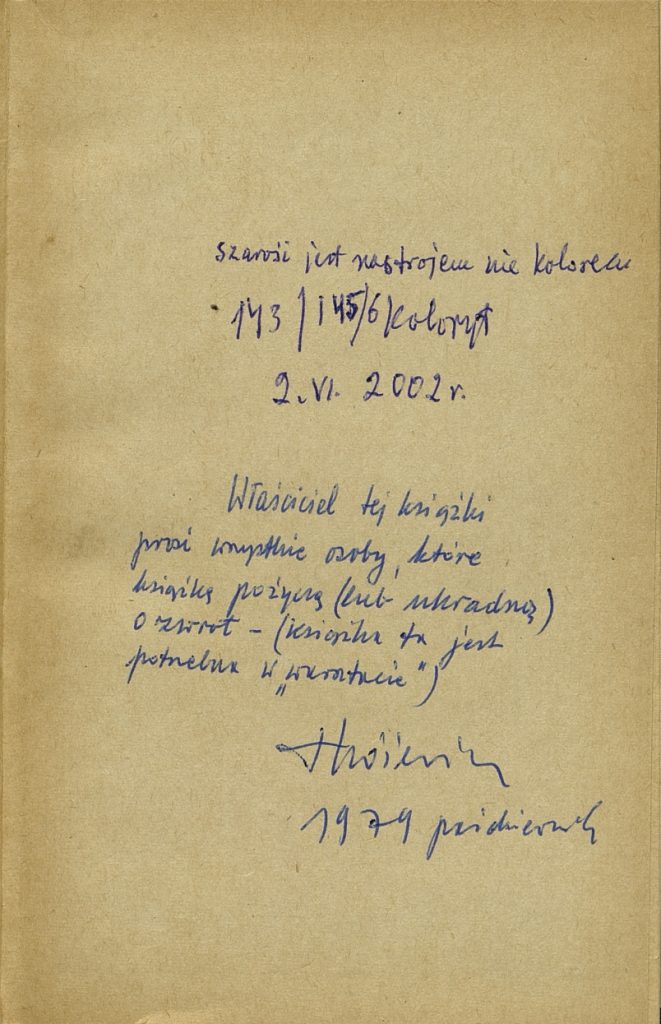 szarość jest nastrojem nie kolorem
143 / 145/6 koloryt
2. VI. 2002 r.
Właściciel tej książki
prosi wszystkie osoby, które
książkę pożyczą (lub ukradną)
o zwrot – (książka ta jest
potrzebna w „warsztacie")
1979 październik